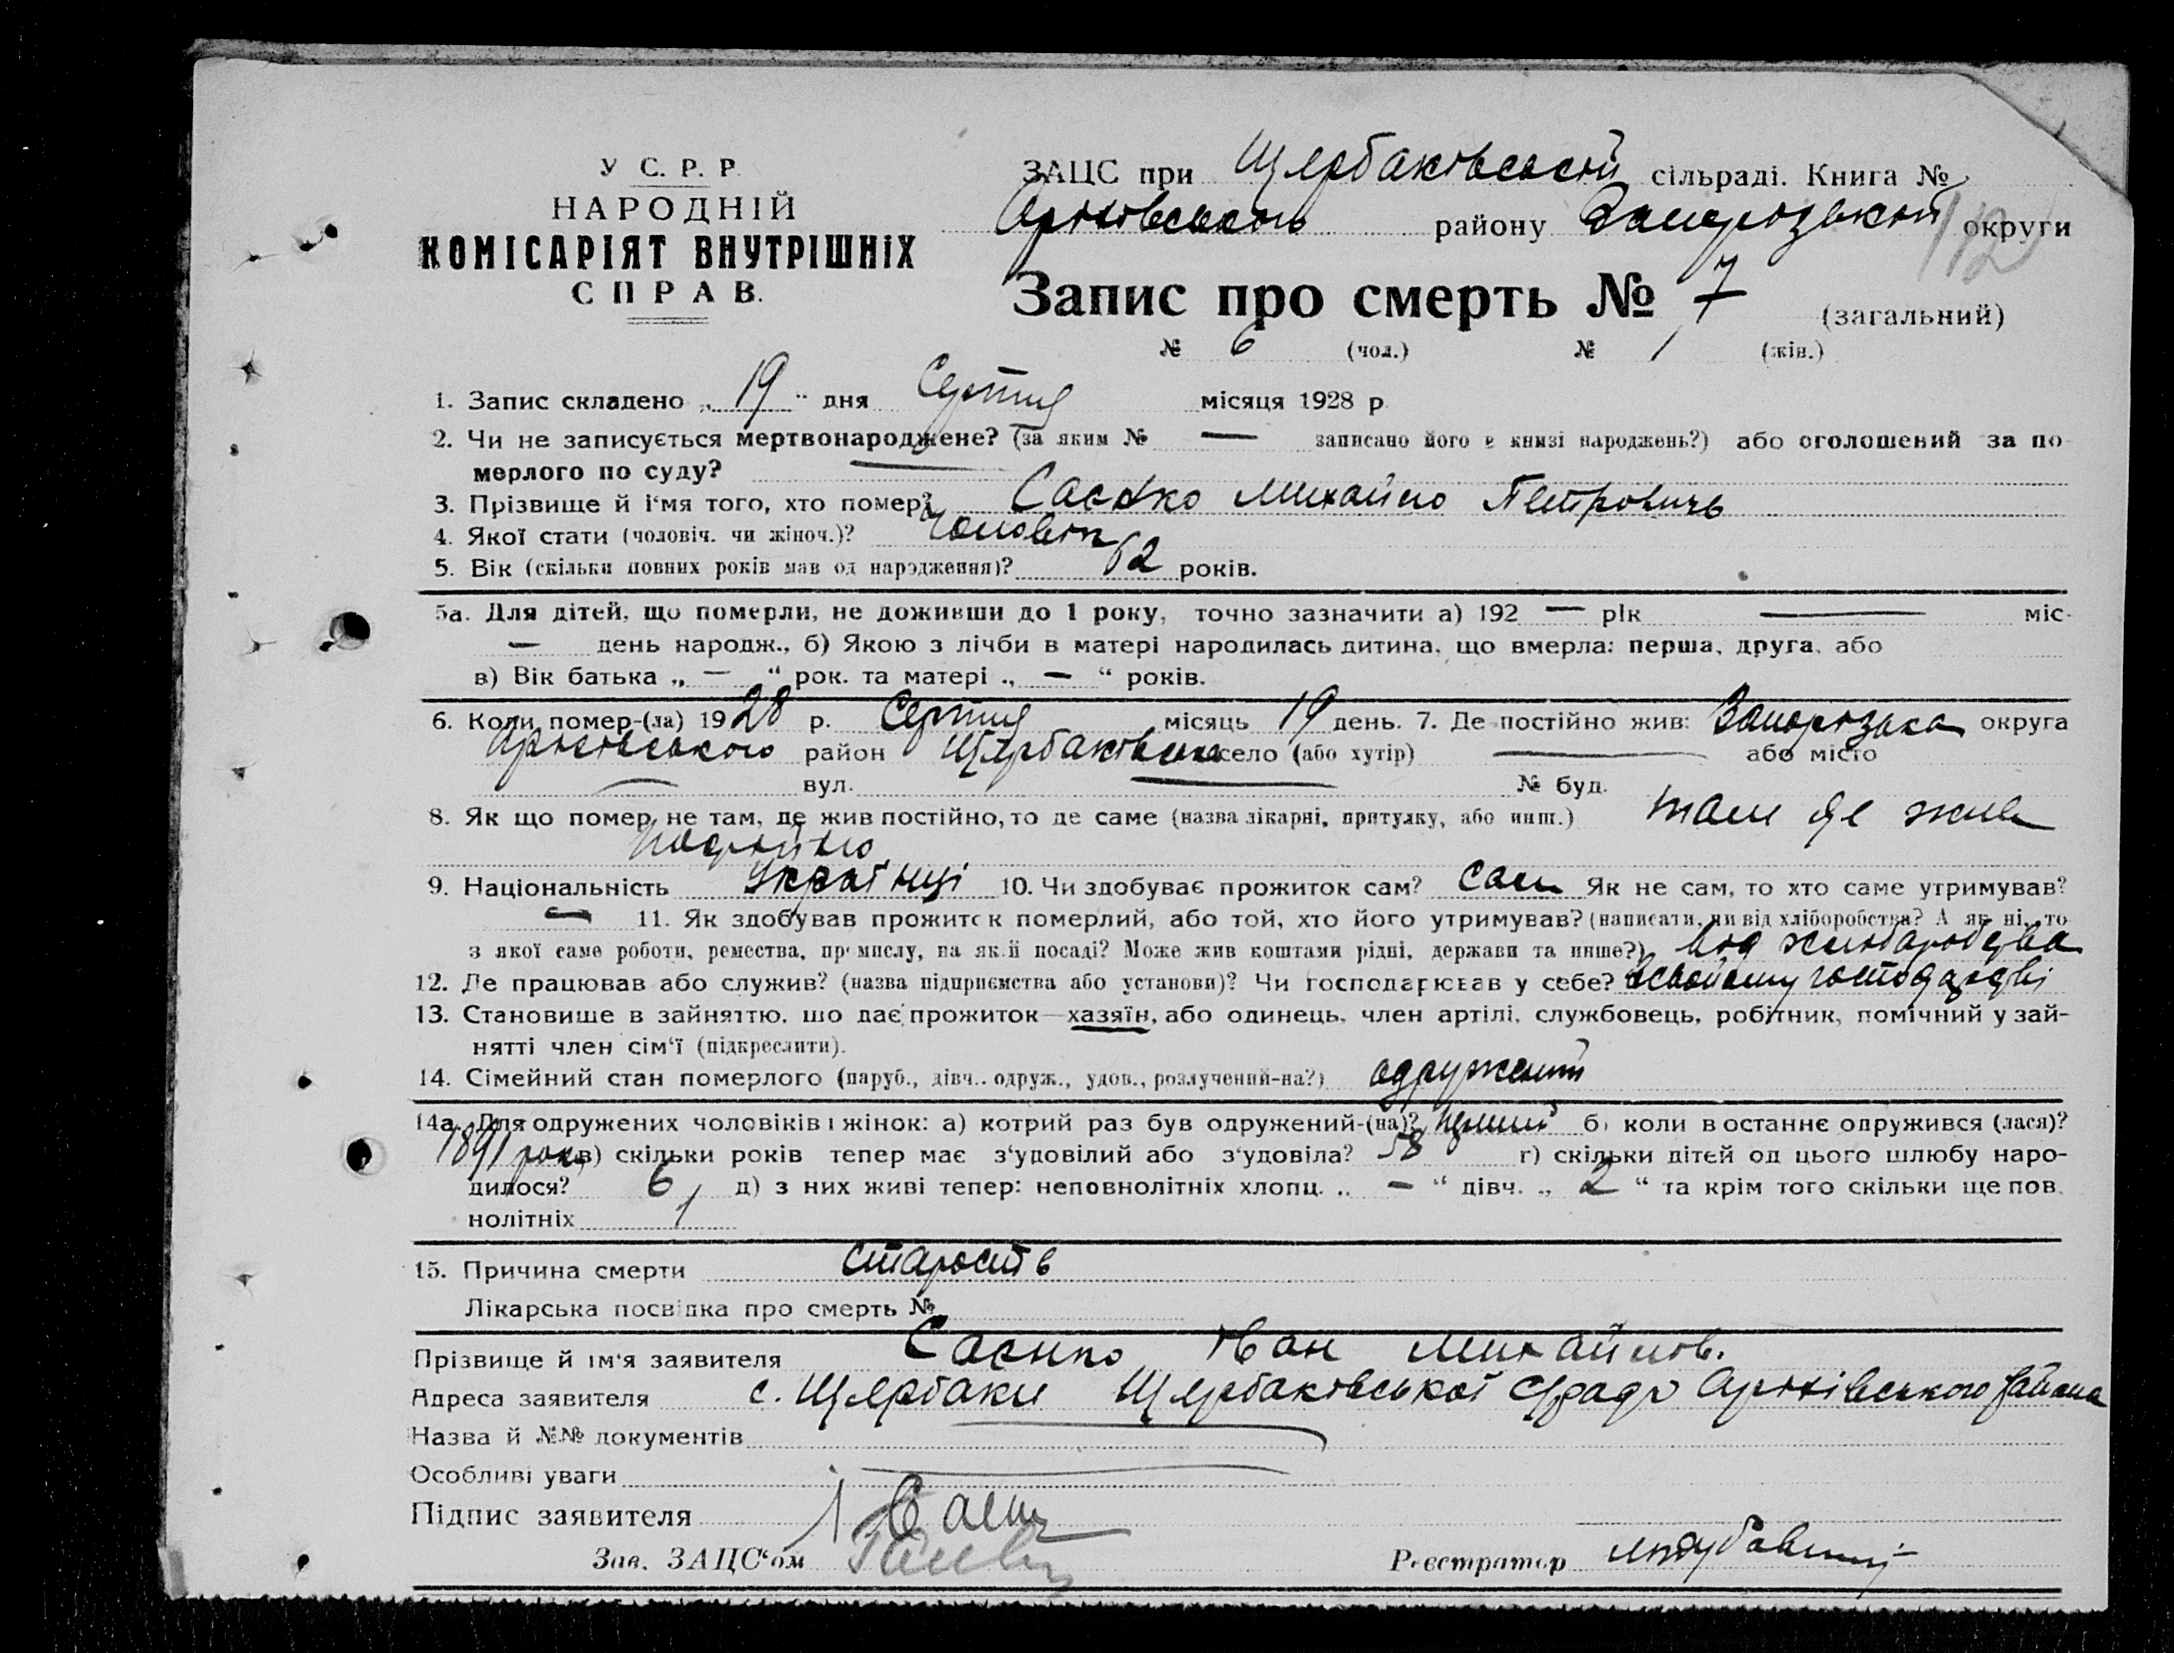 У С. Р. Р.
НАРОДНІЙ
КОМІСАРІЯТ ВНУТРІШНІХ
СПРАВ.
ЗАЦС при Щербаківській сільраді. Книга №
Оріхівського району Запорізької округи
112
Запис про смерть № 7 (загальний)
№ 6 (чол.) № 1 (жін.)
1. Запис складено „ 19 “ дня Серпня місяця 1928 р.
2. Чи не записується мертвонароджене? (за яким № — записано його в книзі народжень?) або оголошений за по-
мерлого по суду? —
3. Прізвище й і'мя того, хто помер? Саєнко Михайло Петровичь
4. Якої стати (чоловіч. чи жіноч.)? Чоловік
5. Вік (скільки повних років мав од народження)? 62 років.
5а. Для дітей, що померли, не доживши до 1 року, точно зазначити а) 192 — рік — міс.
— день народж., б) Якою з лічби в матері народилась дитина, що вмерла: перша, друга, або
в) Вік батька „ — “ рок. та матері „ — “ років.
6. Коли помер-(ла) 1928 р. Серпня місяць 19 день. 7. Де постійно жив: Запорізька округа
Оріхівського район Щербаківська село (або хутір) — або місто
— вул. — № буд.
8. Як що помер не там, де жив постійно, то де саме (назва лікарні, притулку, або инш.) там де жив
постійно
9. Національність Українці 10. Чи здобуває прожиток сам? Сам Як не сам, то хто саме утримував?
— 11. Як здобував прожиток померлий, або той, хто його утримував? (написати, чи від хліборобства? А як ні, то
з якої саме роботи, ремества, промислу, на якій посаді? Може жив коштами рідні, держави та инше?) від хліборобства
12. Де працював або служив? (назва підприємства або установи)? Чи господарював у себе? В своїому господарстві
13. Становище в зайняттю, що дає прожиток—хазяїн, або одинець, член артілі, службовець, робітник, помічний у зай-
нятті член сім'ї (підкреслити).
14. Сімейний стан померлого (паруб., дівч., одруж., удов., розлучений-на?) одружений
14а. Для одружених чоловіків і жінок: а) котрий раз був одружений-(на)? перший б) коли в останнє одружився (лася)?
1891 року в) скільки років тепер має з'удовілий або з'удовіла? 58 г) скільки дітей од цього шлюбу наро-
дилося? 6 д) з них живі тепер: неповнолітніх хлопц. „ — “ дівч. „ 2 “ та крім того скільки ще пов.
нолітніх 1
15. Причина смерти старость
Лікарська посвідка про смерть №
Прізвище й ім'я заявителя Саєнко Іван Михайлов.
Адреса заявителя с. Щербаки Щербаківської с/ради Оріхівського району
Назва й №№ документів —
Особливі уваги —
Підпис заявителя І Саєн
Зав. ЗАЦС'ом
Реєстратор